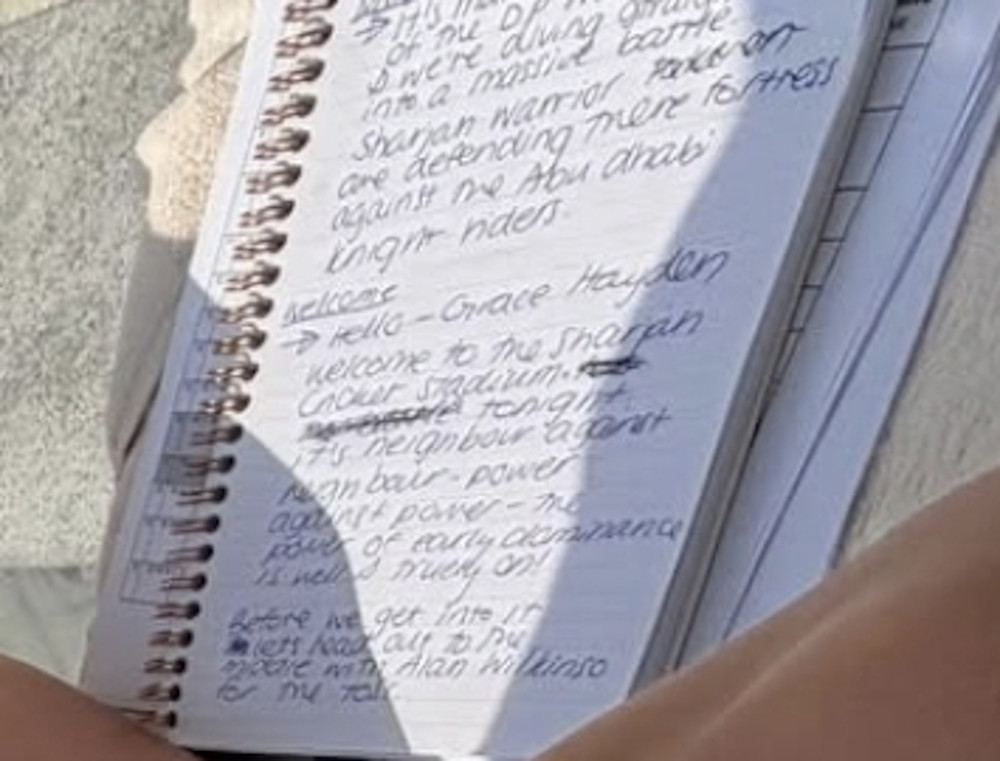 → It's
of the DP
& we're diving straight
into a massive battle
Sharjah warrior
are defending there fortress
against the Abu dhabi
knight riders.
Welcome
→ Hello - Grace Hayden
welcome to the Sharjah
cricket stadium.
tonight
it's neighbour against
neighbour - power
against power - the
power of early dominance
is well & truely on!
Before we get into it
lets head out to the
middle with Alan Wilkinso
for the toss.